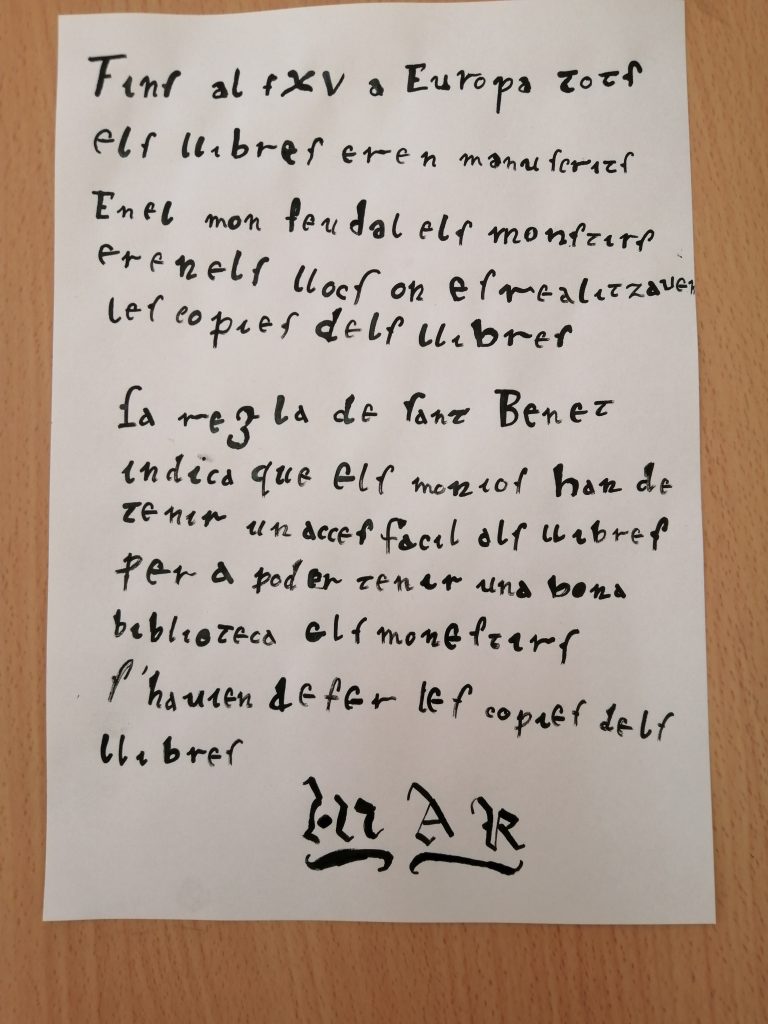 Fins al s XV a Europa tots
els llibres eren manuscrits
En el mon feudal els monstirs
eren els llocs on es realitzaven
les copies dels llibres
La regla de sant Benet
indica que els monjos han de
tenir un acces facil als llibres
per a poder tenir una bona
biblioteca els monestirs
s'havien de fer les copies dels
llibres
MAR